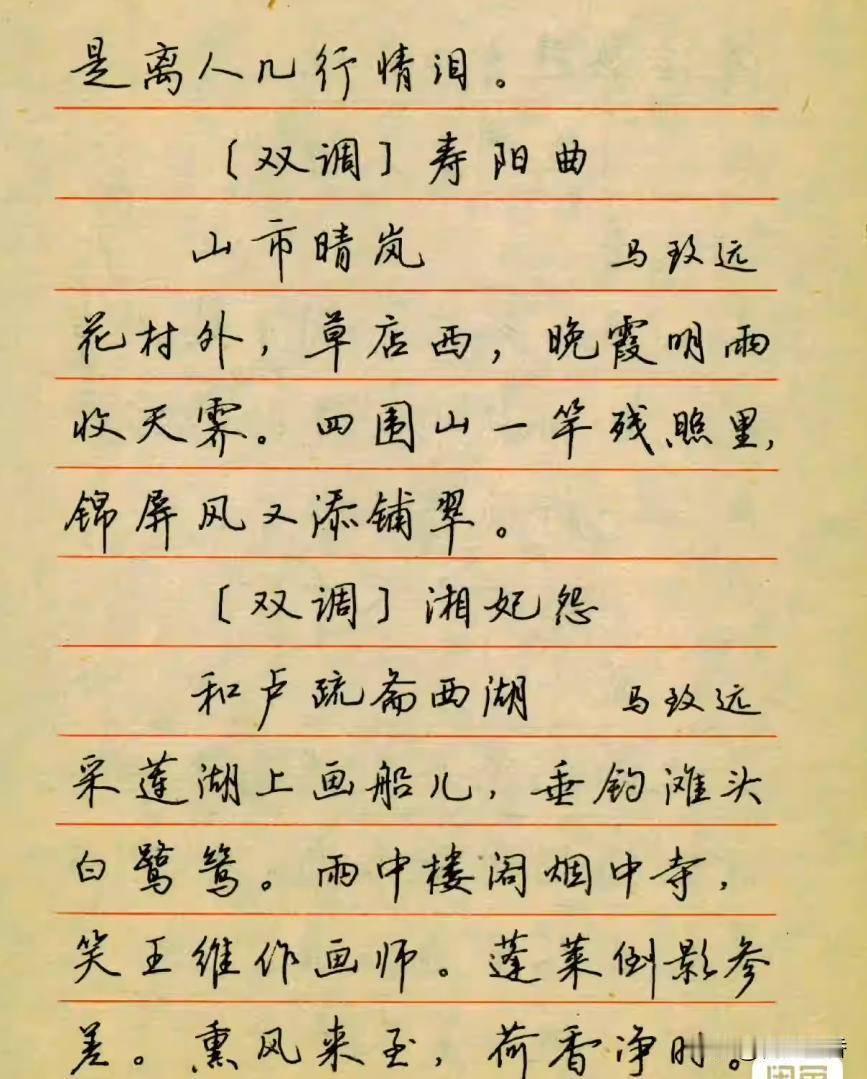 是离人几行情泪。
〔双调〕寿阳曲
山市晴岚 马致远
花村外，草店西，晚霞明雨
收天霁。四围山一竿残照里，
锦屏风又添铺翠。
〔双调〕湘妃怨
和卢疏斋西湖 马致远
采莲湖上画船儿，垂钓滩头
白鹭鸶。雨中楼阁烟中寺，
笑王维作画师。蓬莱倒影参
差。熏风来至，荷香净时。